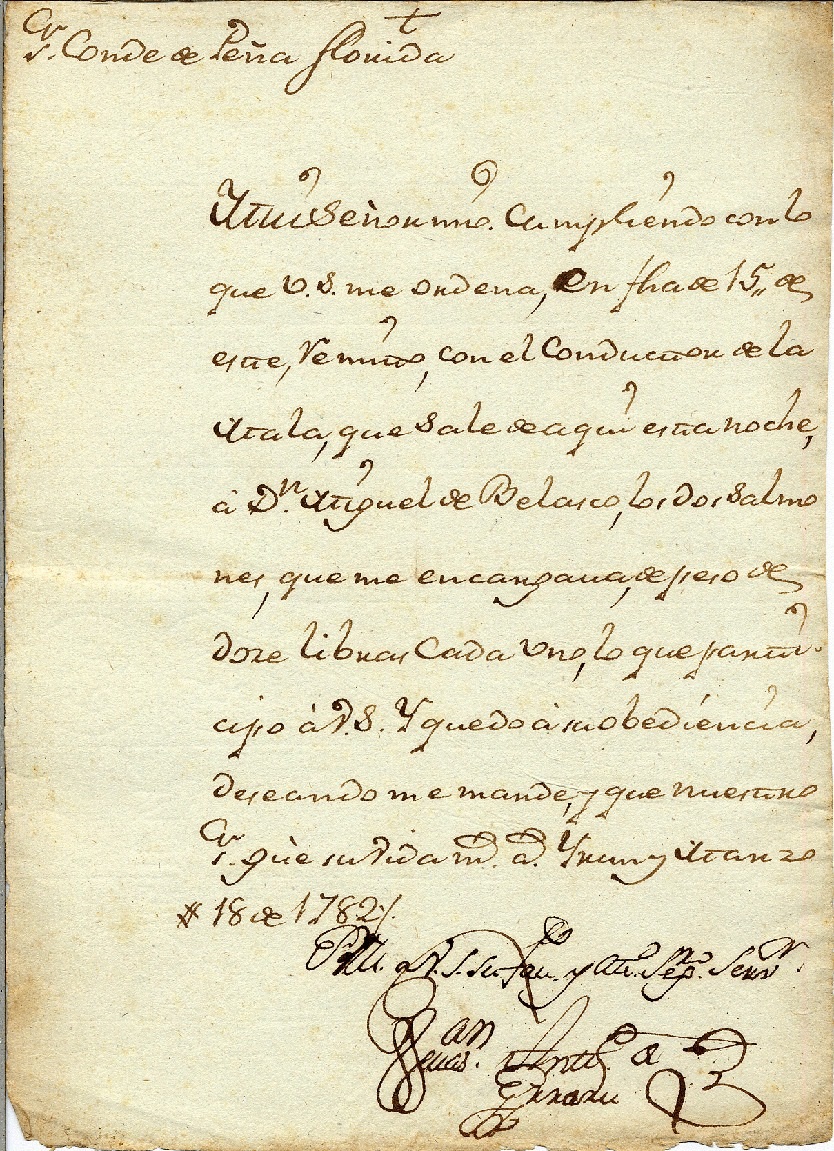 †
Sr. Conde de Peña florida
Mui Señor mio. Cumpliendo con lo
que V.S. me ordena, en fha de 15,, de
este, Remito, con el Conductor de la
Mala, que Sale de aqui esta noche,
à Dn. Miguel de Belasco, los dos Salmo
nes, que me encargava, de peso de
doze libras Cada uno, lo que parti-
cipo à V.S. Y quedo à su obediencia,
deseando me mande, y que nuestro
Sr. güe su Vida ms. as. Yrun y Marzo
# 18 de 1782,,
BLM. a V.S. su fau. y atto. Sego. Servr.
Juan Antto. de